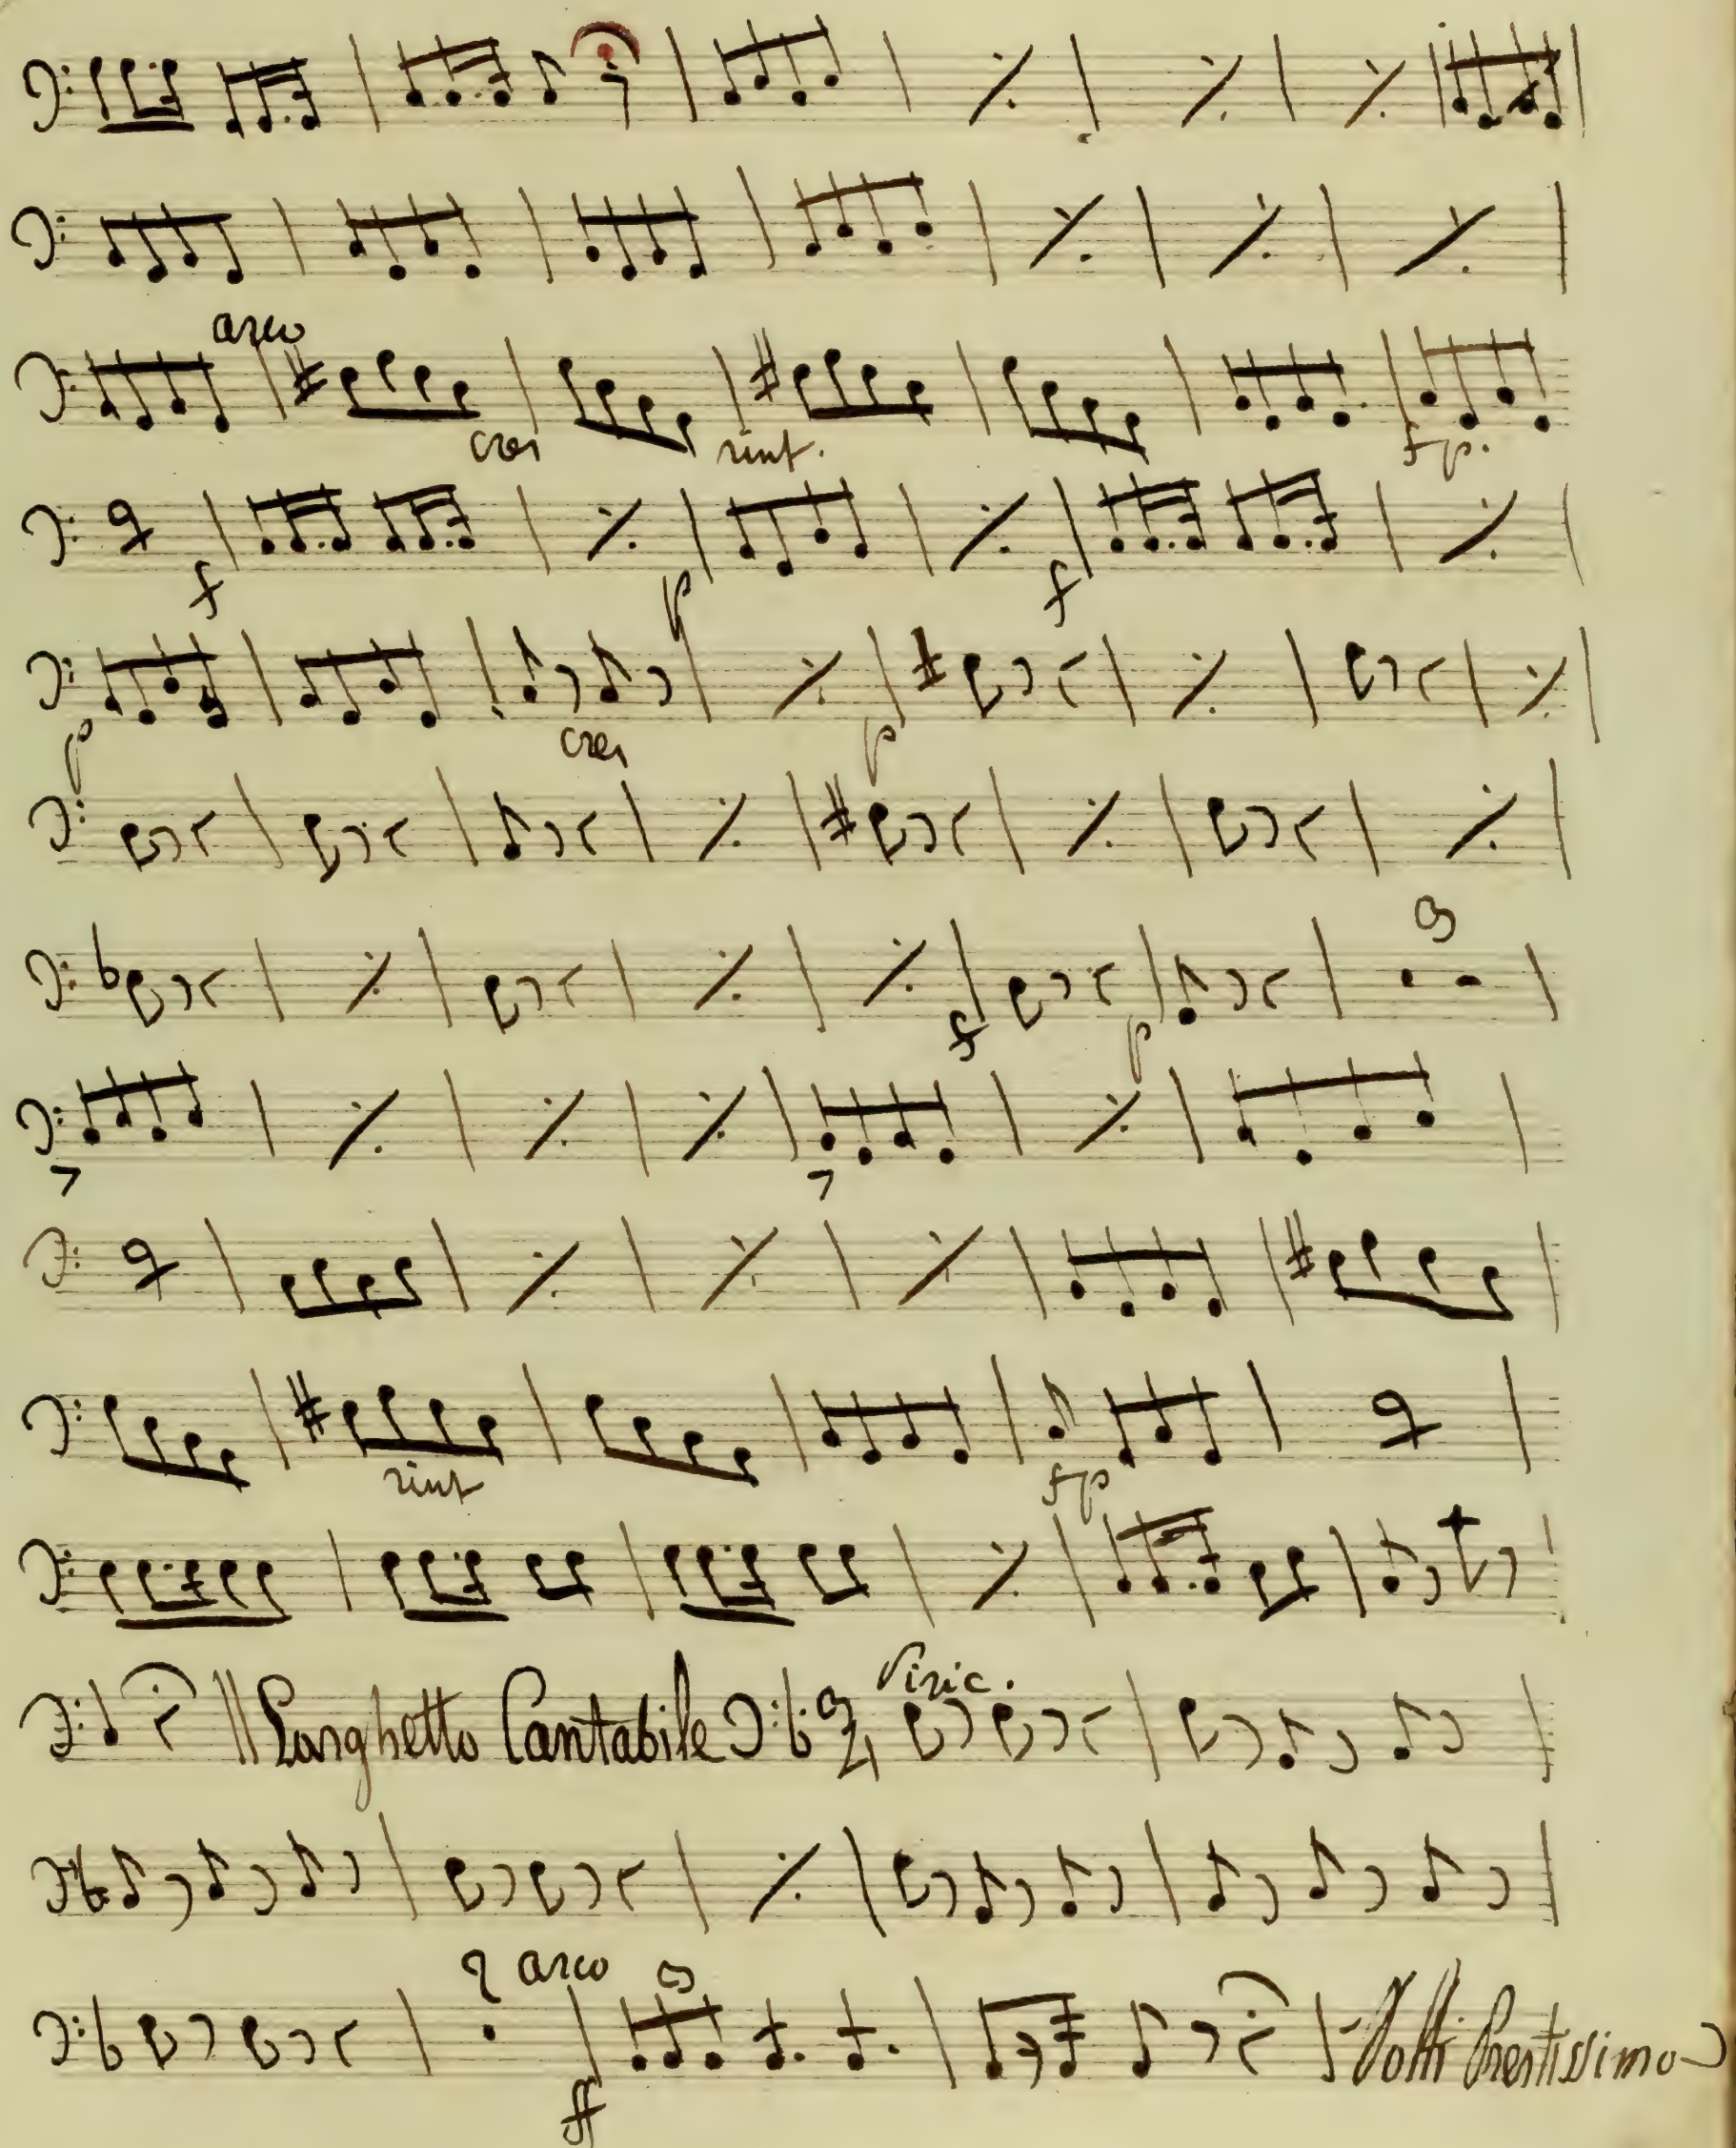 arco
cres rinf.
fp.
f p f
p cres p
3
f p
rinf fp
Larghetto Cantabile 3/4 Pizic.
2 arco 3
ff Volti Prestissimo